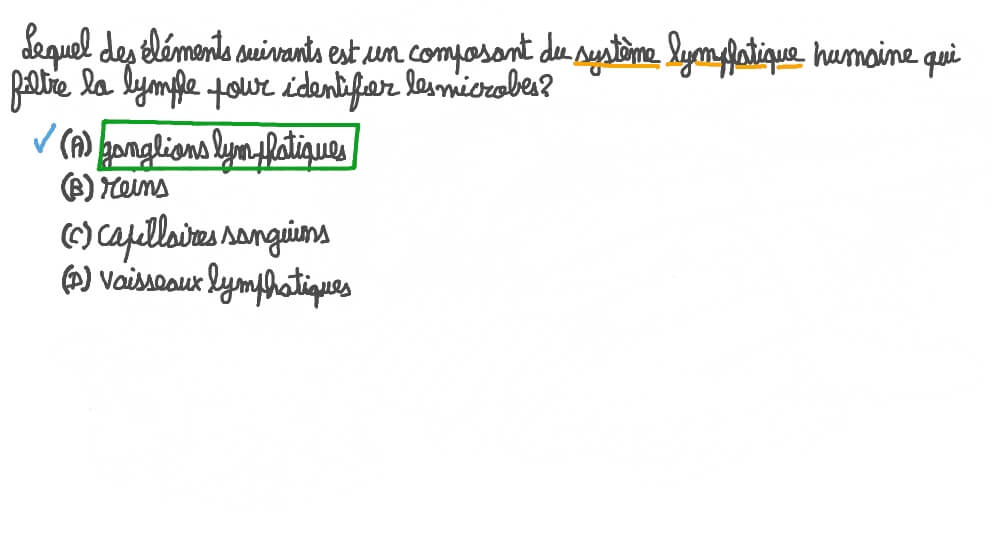 Lequel des éléments suivants est un composant du système lymphatique humaine qui
filtre la lymphe pour identifier les microbes?
(A) ganglions lymphatiques
(B) reins
(C) capillaires sanguins
(D) vaisseaux lymphatiques